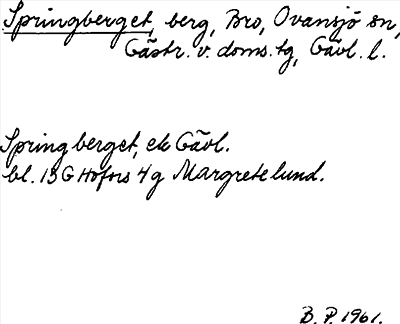 Springberget, berg, Bro, Ovansjö sn,
Gästr. v. doms. tg, Gävl. l.
Springberget, ek Gävl.
bl. 13 G Hofors 4 g Margretelund.
B. P. 1961.